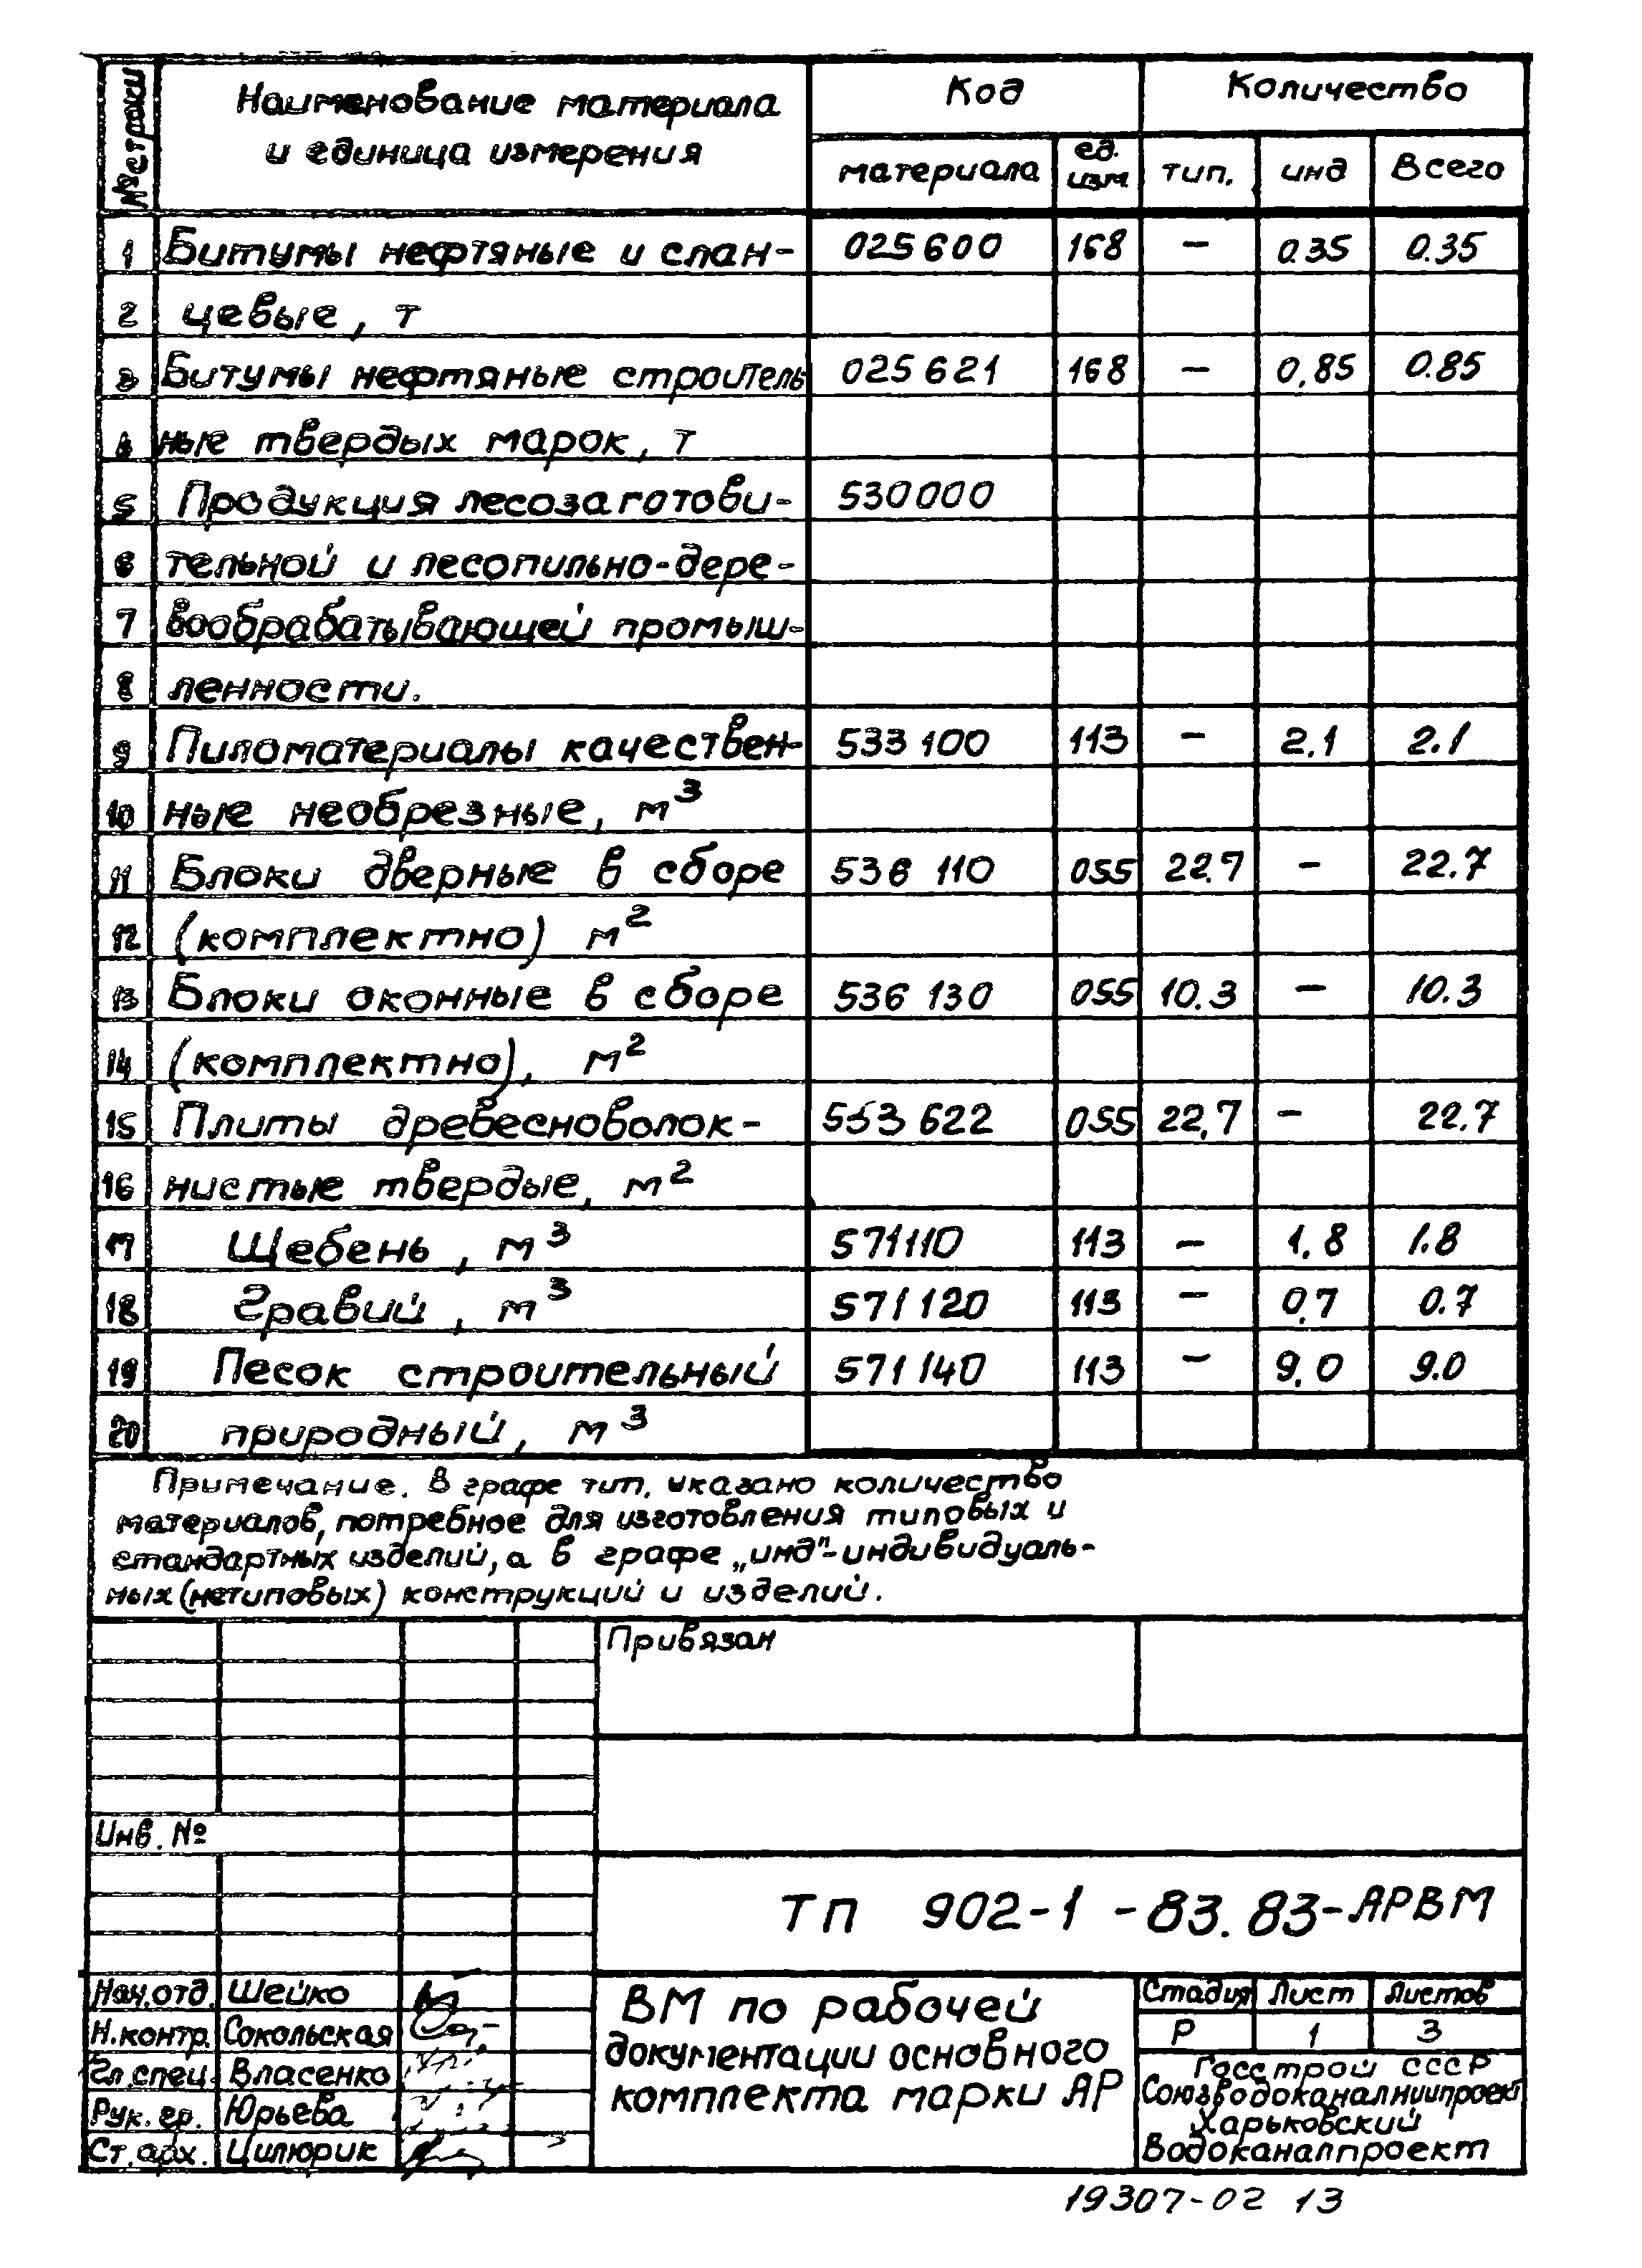 № строки Наименование материала Код Количество
и единица измерения материала ед. изм тип. инд Всего
1 Битумы нефтяные и слан- 025600 168 - 0.35 0.35
2 цевые, т
3 Битумы нефтяные строитель 025621 168 - 0,85 0.85
4 ные твердых марок, т
5 Продукция лесозаготови- 530000
6 тельной и лесопильно-дере-
7 вообрабатывающей промыш-
8 ленности.
9 Пиломатериалы качествен- 533 100 113 - 2.1 2.1
10 ные необрезные, м³
11 Блоки дверные в сборе 536 110 055 22.7 - 22.7
12 (комплектно) м²
13 Блоки оконные в сборе 536 130 055 10.3 - 10.3
14 (комплектно), м²
15 Плиты древесноволок- 553 622 055 22,7 - 22.7
16 нистые твердые, м²
17 Щебень, м³ 571110 113 - 1,8 1.8
18 Гравий, м³ 571120 113 - 0,7 0.7
19 Песок строительный 571140 113 - 9,0 9.0
20 природный, м³
Примечание. В графе тип. указано количество
материалов, потребное для изготовления типовых и
стандартных изделий, а в графе „инд"-индивидуаль-
ных (нетиповых) конструкций и изделий.
Привязан
Инв. №
ТП 902-1-83.83-АРВМ
Нач.отд. Шейко
Н.контр. Сокольская
Гл.спец. Власенко
Рук. гр. Юрьева
Ст. арх. Цилюрик
ВМ по рабочей
документации основного
комплекта марки АР
Стадия Лист Листов
Р 1 3
Госстрой СССР
Союзводоканалниипроект
Харьковский
Водоканалпроект
19307-02 13